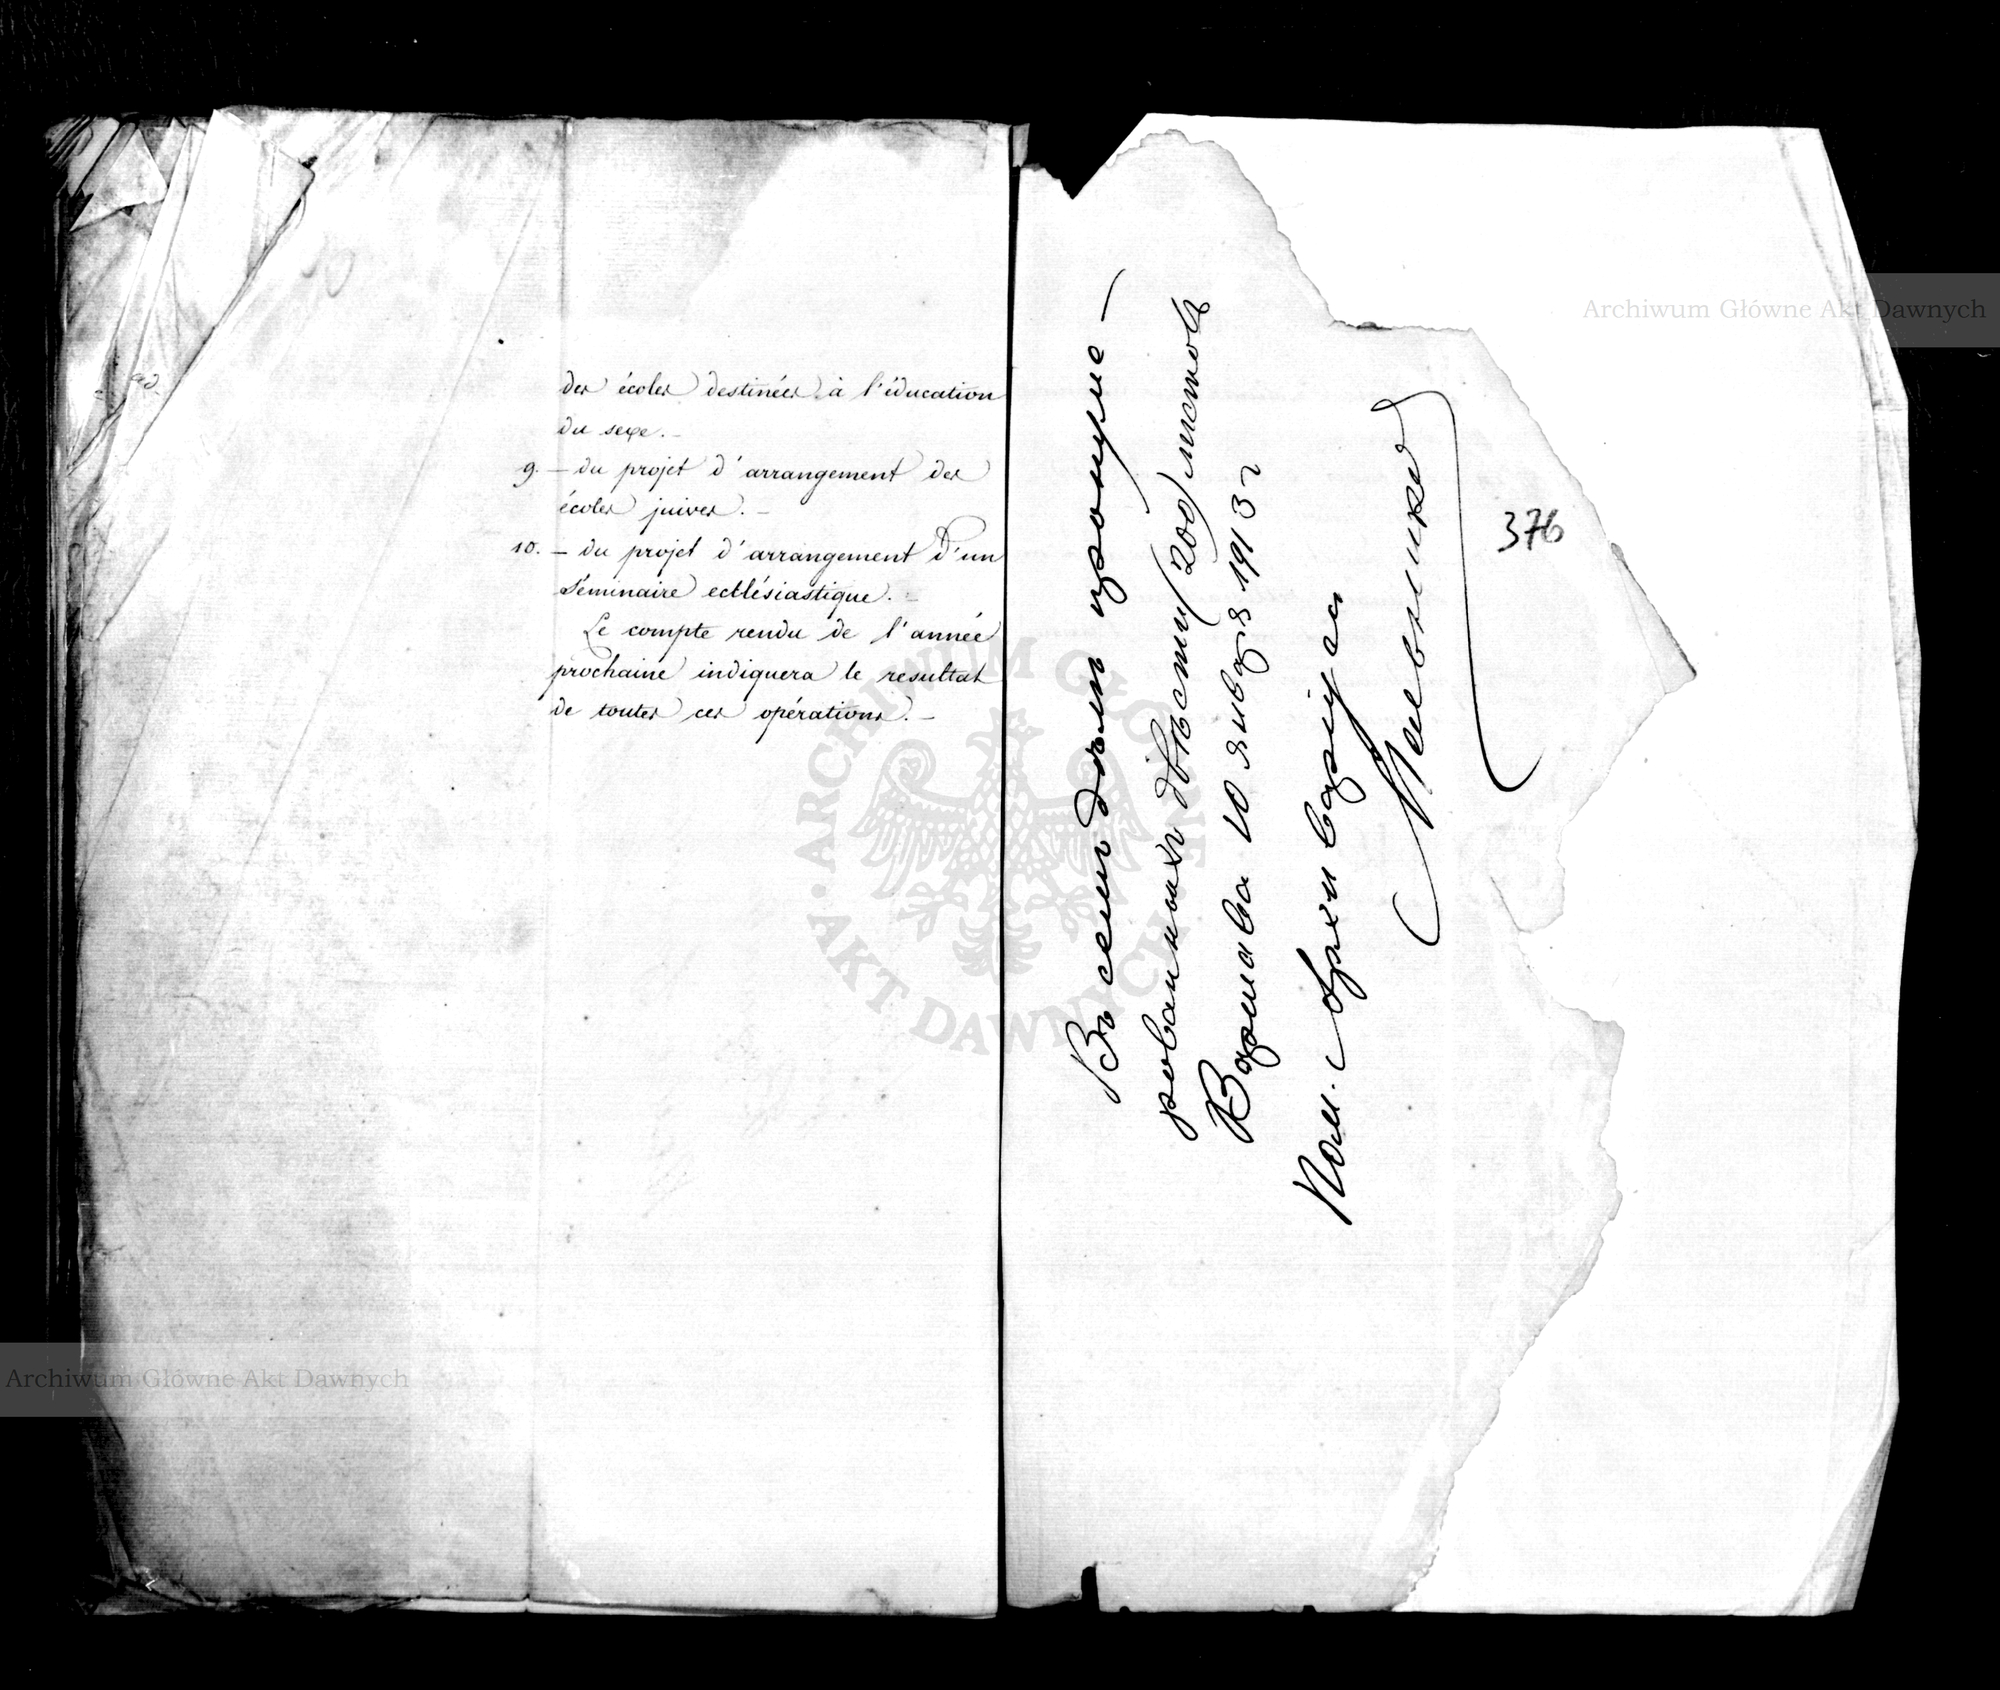 des écoles destinées à l'éducation
du sexe. —
9. — du projet d'arrangement des
écoles juives. —
10. — du projet d'arrangement d'un
Séminaire ecclésiastique. —
Le compte rendu de l'année
prochaine indiquera le resultat
de toutes ces opérations. —
Въ семъ дѣлѣ прону-
рованныхъ двѣсти (200) листовъ
Варшава 10 января 1913 г
Пом. Архиваріуса
376
Archiwum Główne Akt Dawnych
Archiwum Główne Akt Dawnych
· ARCHIWUM GŁÓWNE · AKT DAWNYCH